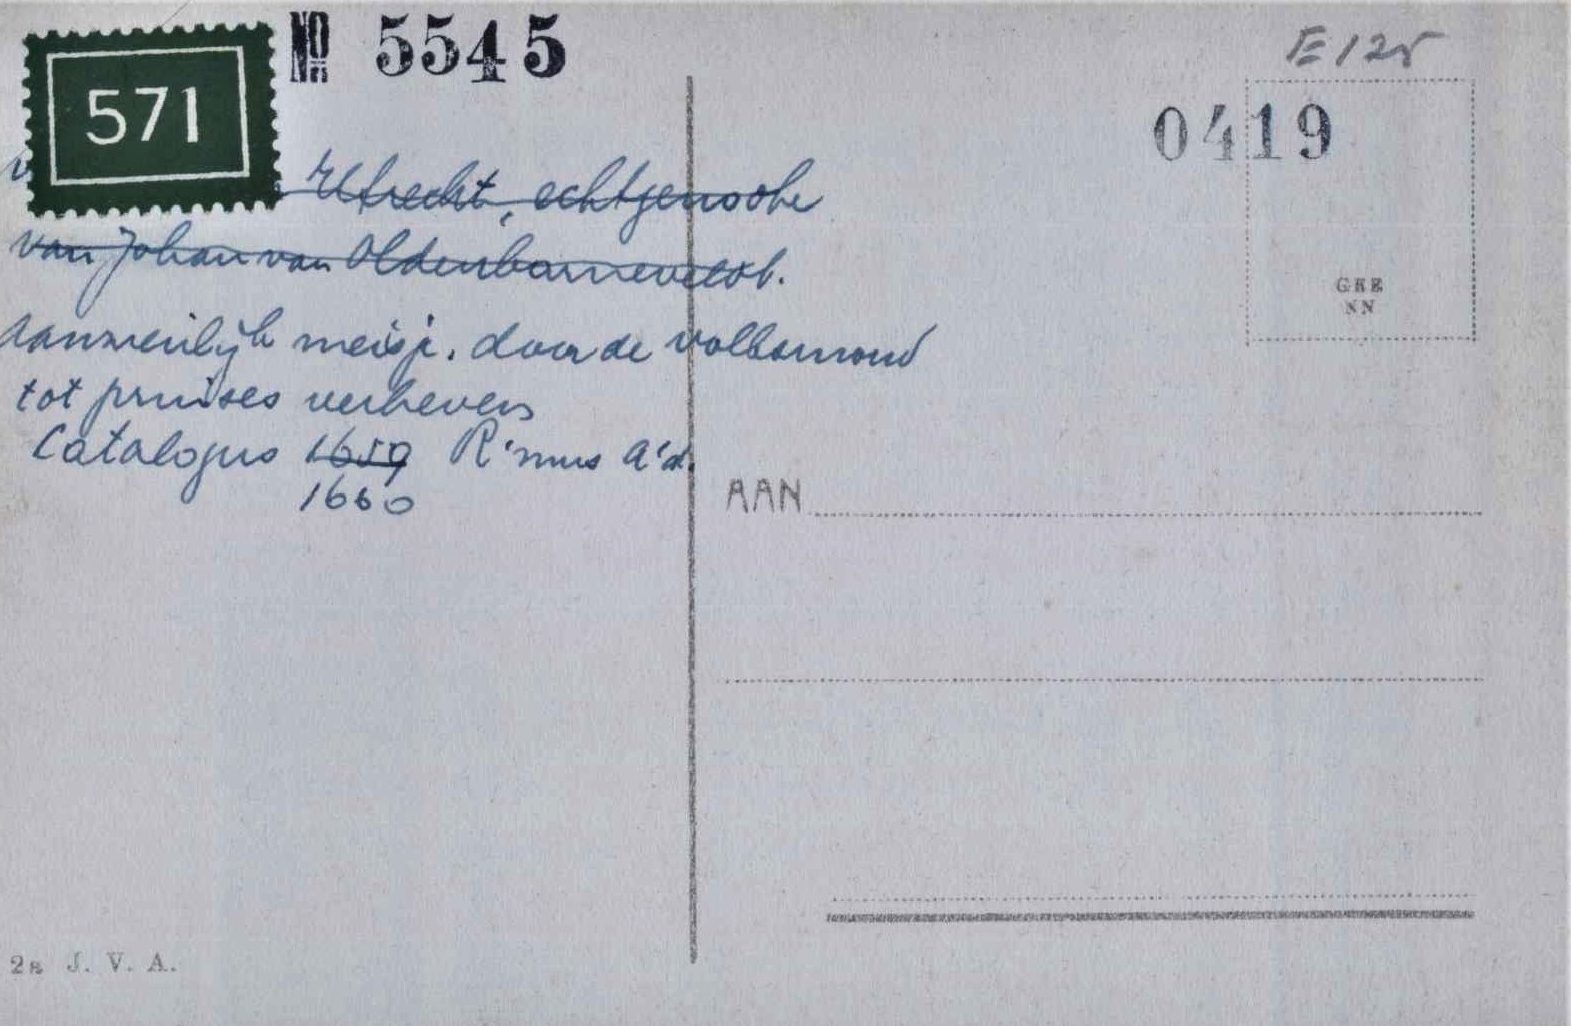 571
No 5545
E 125
0419
Utrecht, echtgenoote
van Johan van Oldenbarneveldt.
Aanzienlijk meisje. door de volksmond
tot prinses verheven
Catalogus 1659 R'mus A'd.
1660
GEE
NN
AAN
2s J. V. A.